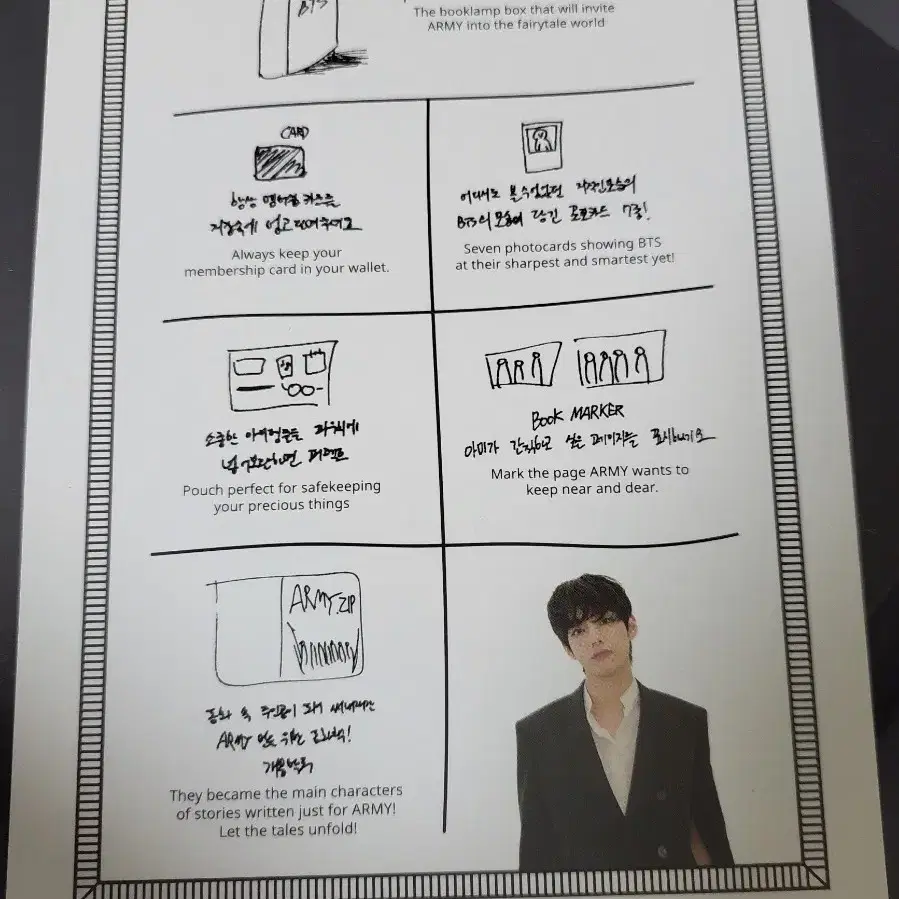 BTS
The booklamp box that will invite
ARMY into the fairytale world
CARD
항상 멤버쉽 카드를
지갑속에 넣고 다녀주세요
Always keep your
membership card in your wallet.
어디서도 볼수없었던 지적인모습의
BTS의 모습이 담긴 포토카드 7종!
Seven photocards showing BTS
at their sharpest and smartest yet!
소중한 아이템들을 파우치에
넣어 보관하면 퍼펙트
Pouch perfect for safekeeping
your precious things
BOOK MARKER
아미가 간직하고 싶은 페이지를 표시하세요
Mark the page ARMY wants to
keep near and dear.
ARMY ZIP
동화 속 주인공이 되어 써내려간
ARMY 만을 위한
개봉박두
They became the main characters
of stories written just for ARMY!
Let the tales unfold!